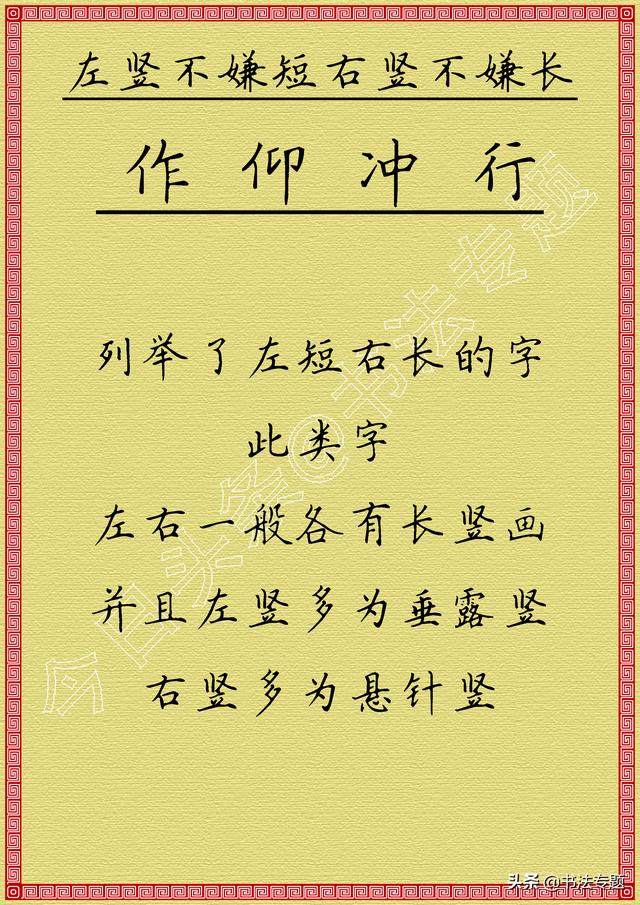 左竖不嫌短右竖不嫌长
作仰冲行
列举了左短右长的字
此类字
左右一般各有长竖画
并且左竖多为垂露竖
右竖多为悬针竖
今日头条@书法专题
头条 @书法专题